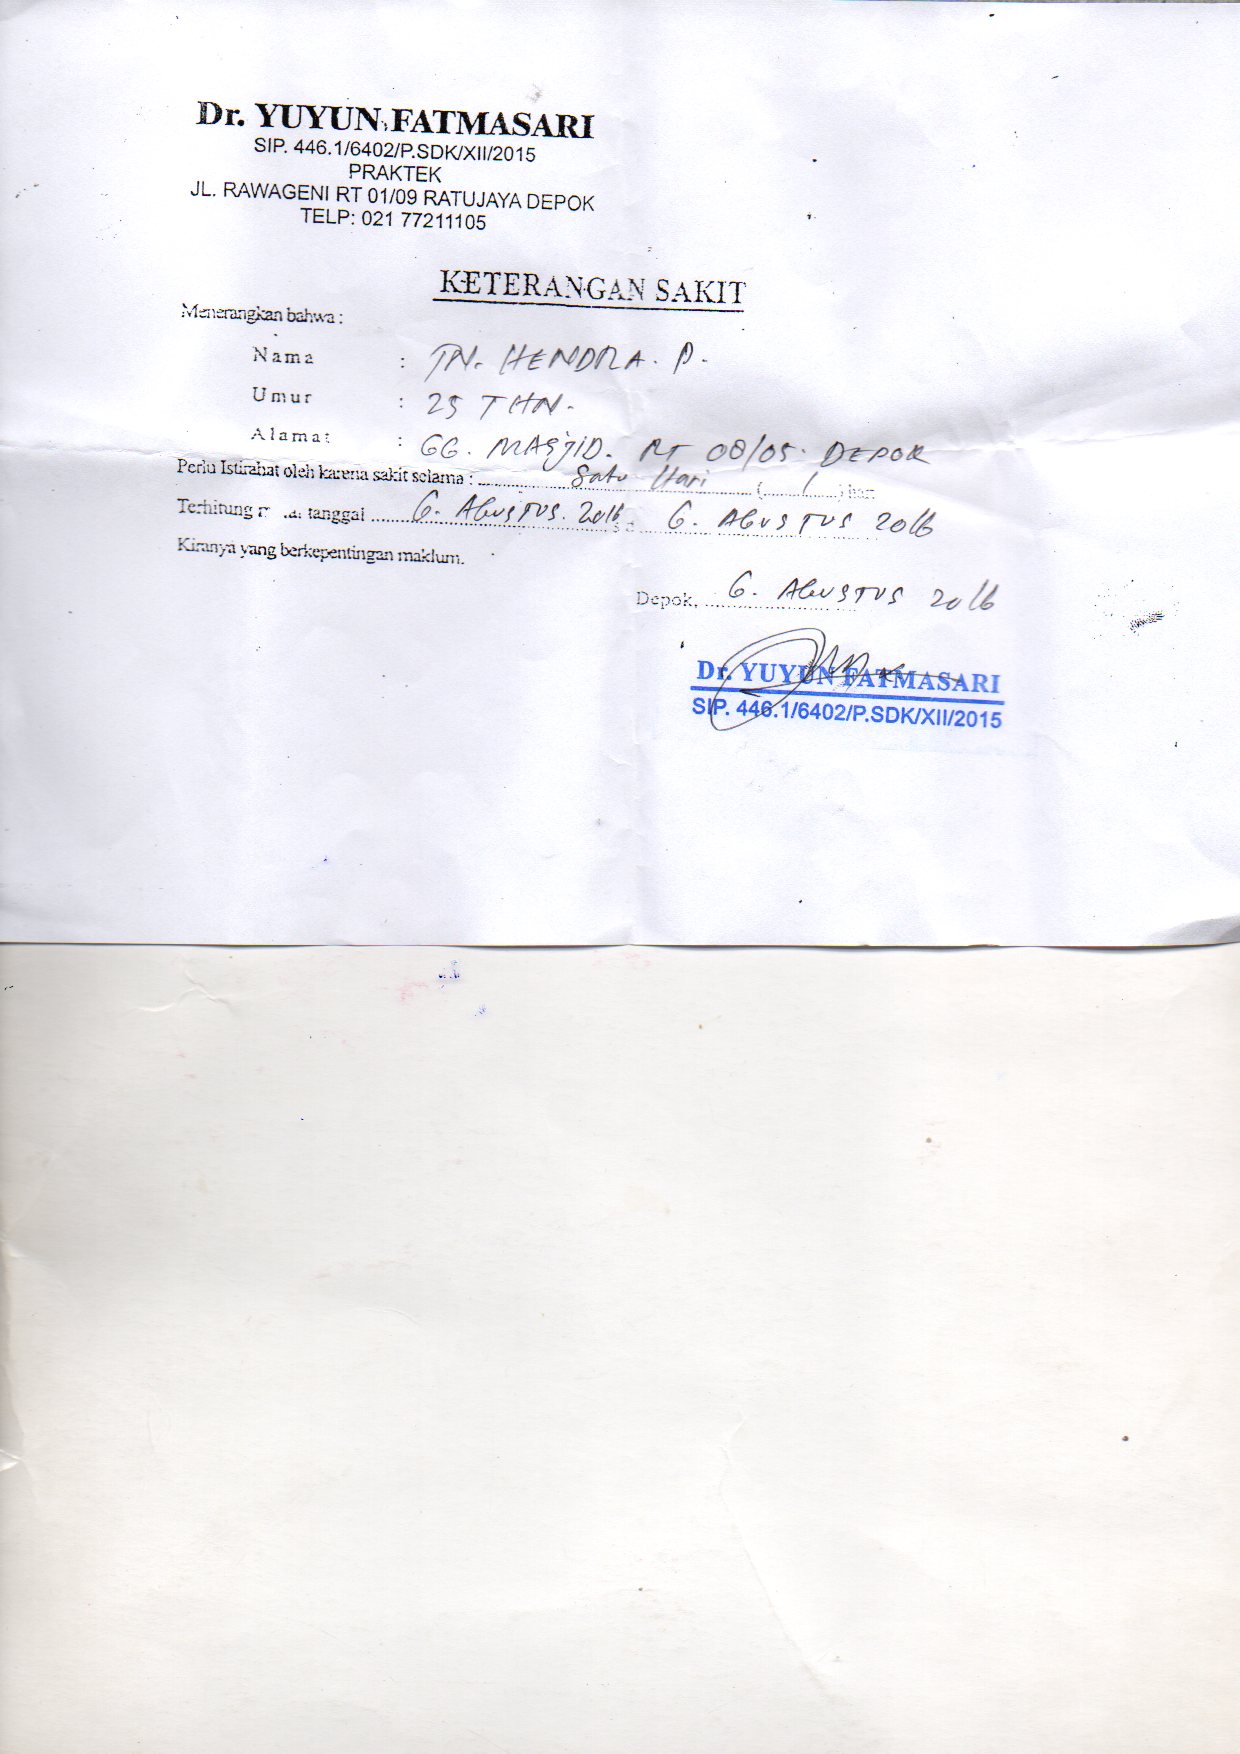 Dr. YUYUN FATMASARI
SIP. 446.1/6402/P.SDK/XII/2015
PRAKTEK
JL. RAWAGENI RT 01/09 RATUJAYA DEPOK
TELP: 021 77211105
KETERANGAN SAKIT
Menerangkan bahwa :
Nama : TN. HENDRA. P.
Umur : 25 THN.
Alamat : GG. MASJID. RT 08/05. DEPOK
Perlu Istirahat oleh karena sakit selama : Satu Hari ( 1 ) hari
Terhitung tanggal 6. AGUSTUS. 2016 s 6. AGUSTUS 2016
Kiranya yang berkepentingan maklum.
Depok, 6. AGUSTUS 2016
Dr. YUYUN FATMASARI
SIP. 446.1/6402/P.SDK/XII/2015